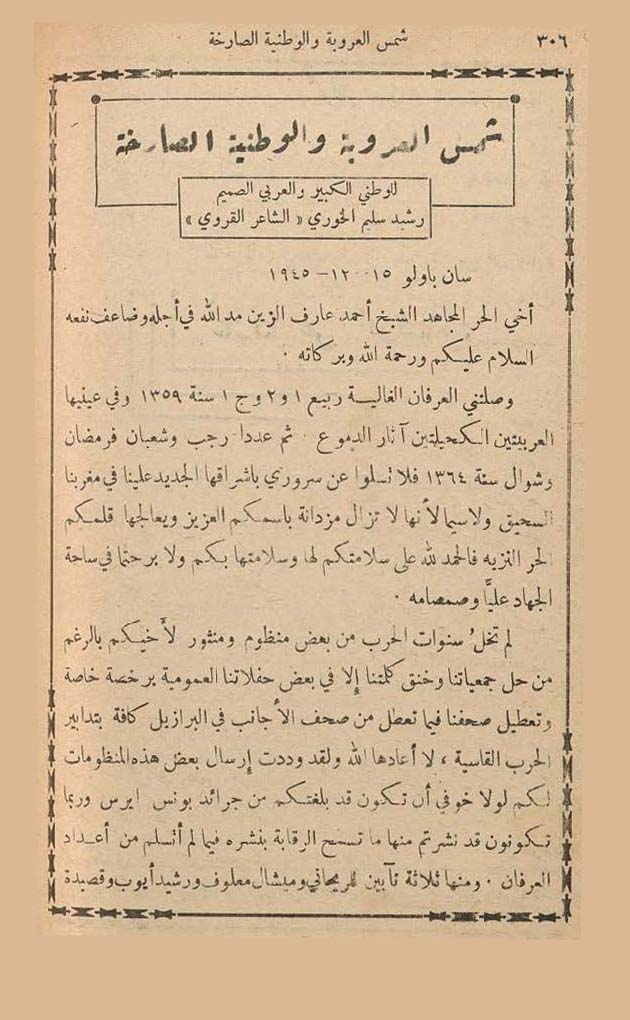 ٣٠٦
شمس العروبة والوطنية الصارخة
شمس العروبة والوطنية الصارخة
للوطني الكبير والعربي الصميم
رشيد سليم الخوري « الشاعر القروي »
سان باولو ١٥-١٢-١٩٤٥
أخي الحر المجاهد الشيخ أحمد عارف الزين مد الله في أجله وضاعف نفعه
السلام عليكم ورحمة الله وبركاته ٠
وصلتني العرفان الغالية ربيع ١ و ٢ وج ١ سنة ١٣٥٩ وفي عينيها
العربيتين الكحيلتين آثار الدموع ٠ ثم عددا رجب وشعبان فرمضان
وشوال سنة ١٣٦٤ فلا تسلوا عن سروري باشراقها الجديد علينا في مغربنا
السحيق ولاسيما لأنها لا تزال مزدانة باسمكم العزيز ويعالجها قلمكم
الحر النزيه فالحمد لله على سلامتكم لها وسلامتها بكم ولا برحتما في ساحة
الجهاد علياً وصمصامه ٠
لم تخلُ سنوات الحرب من بعض منظوم ومنثور لأخيكم بالرغم
من حل جمعياتنا وخنق كلمتنا إلا في بعض حفلاتنا العمومية برخصة خاصة
وتعطيل صحفنا فيما تعطل من صحف الأجانب في البرازيل كافة بتدابير
الحرب القاسية ، لا أعادها الله ولقد وددت إرسال بعض هذه المنظومات
لكم لولا خوفي أن تكون قد بلغتكم من جرائد بونس ايرس وربما
تكونون قد نشرتم منها ما تسمح الرقابة بنشره فيما لم أتسلم من أعداد
العرفان ٠ ومنها ثلاثة تآبين للريحاني وميشال معلوف ورشيد أيوب وقصيدة